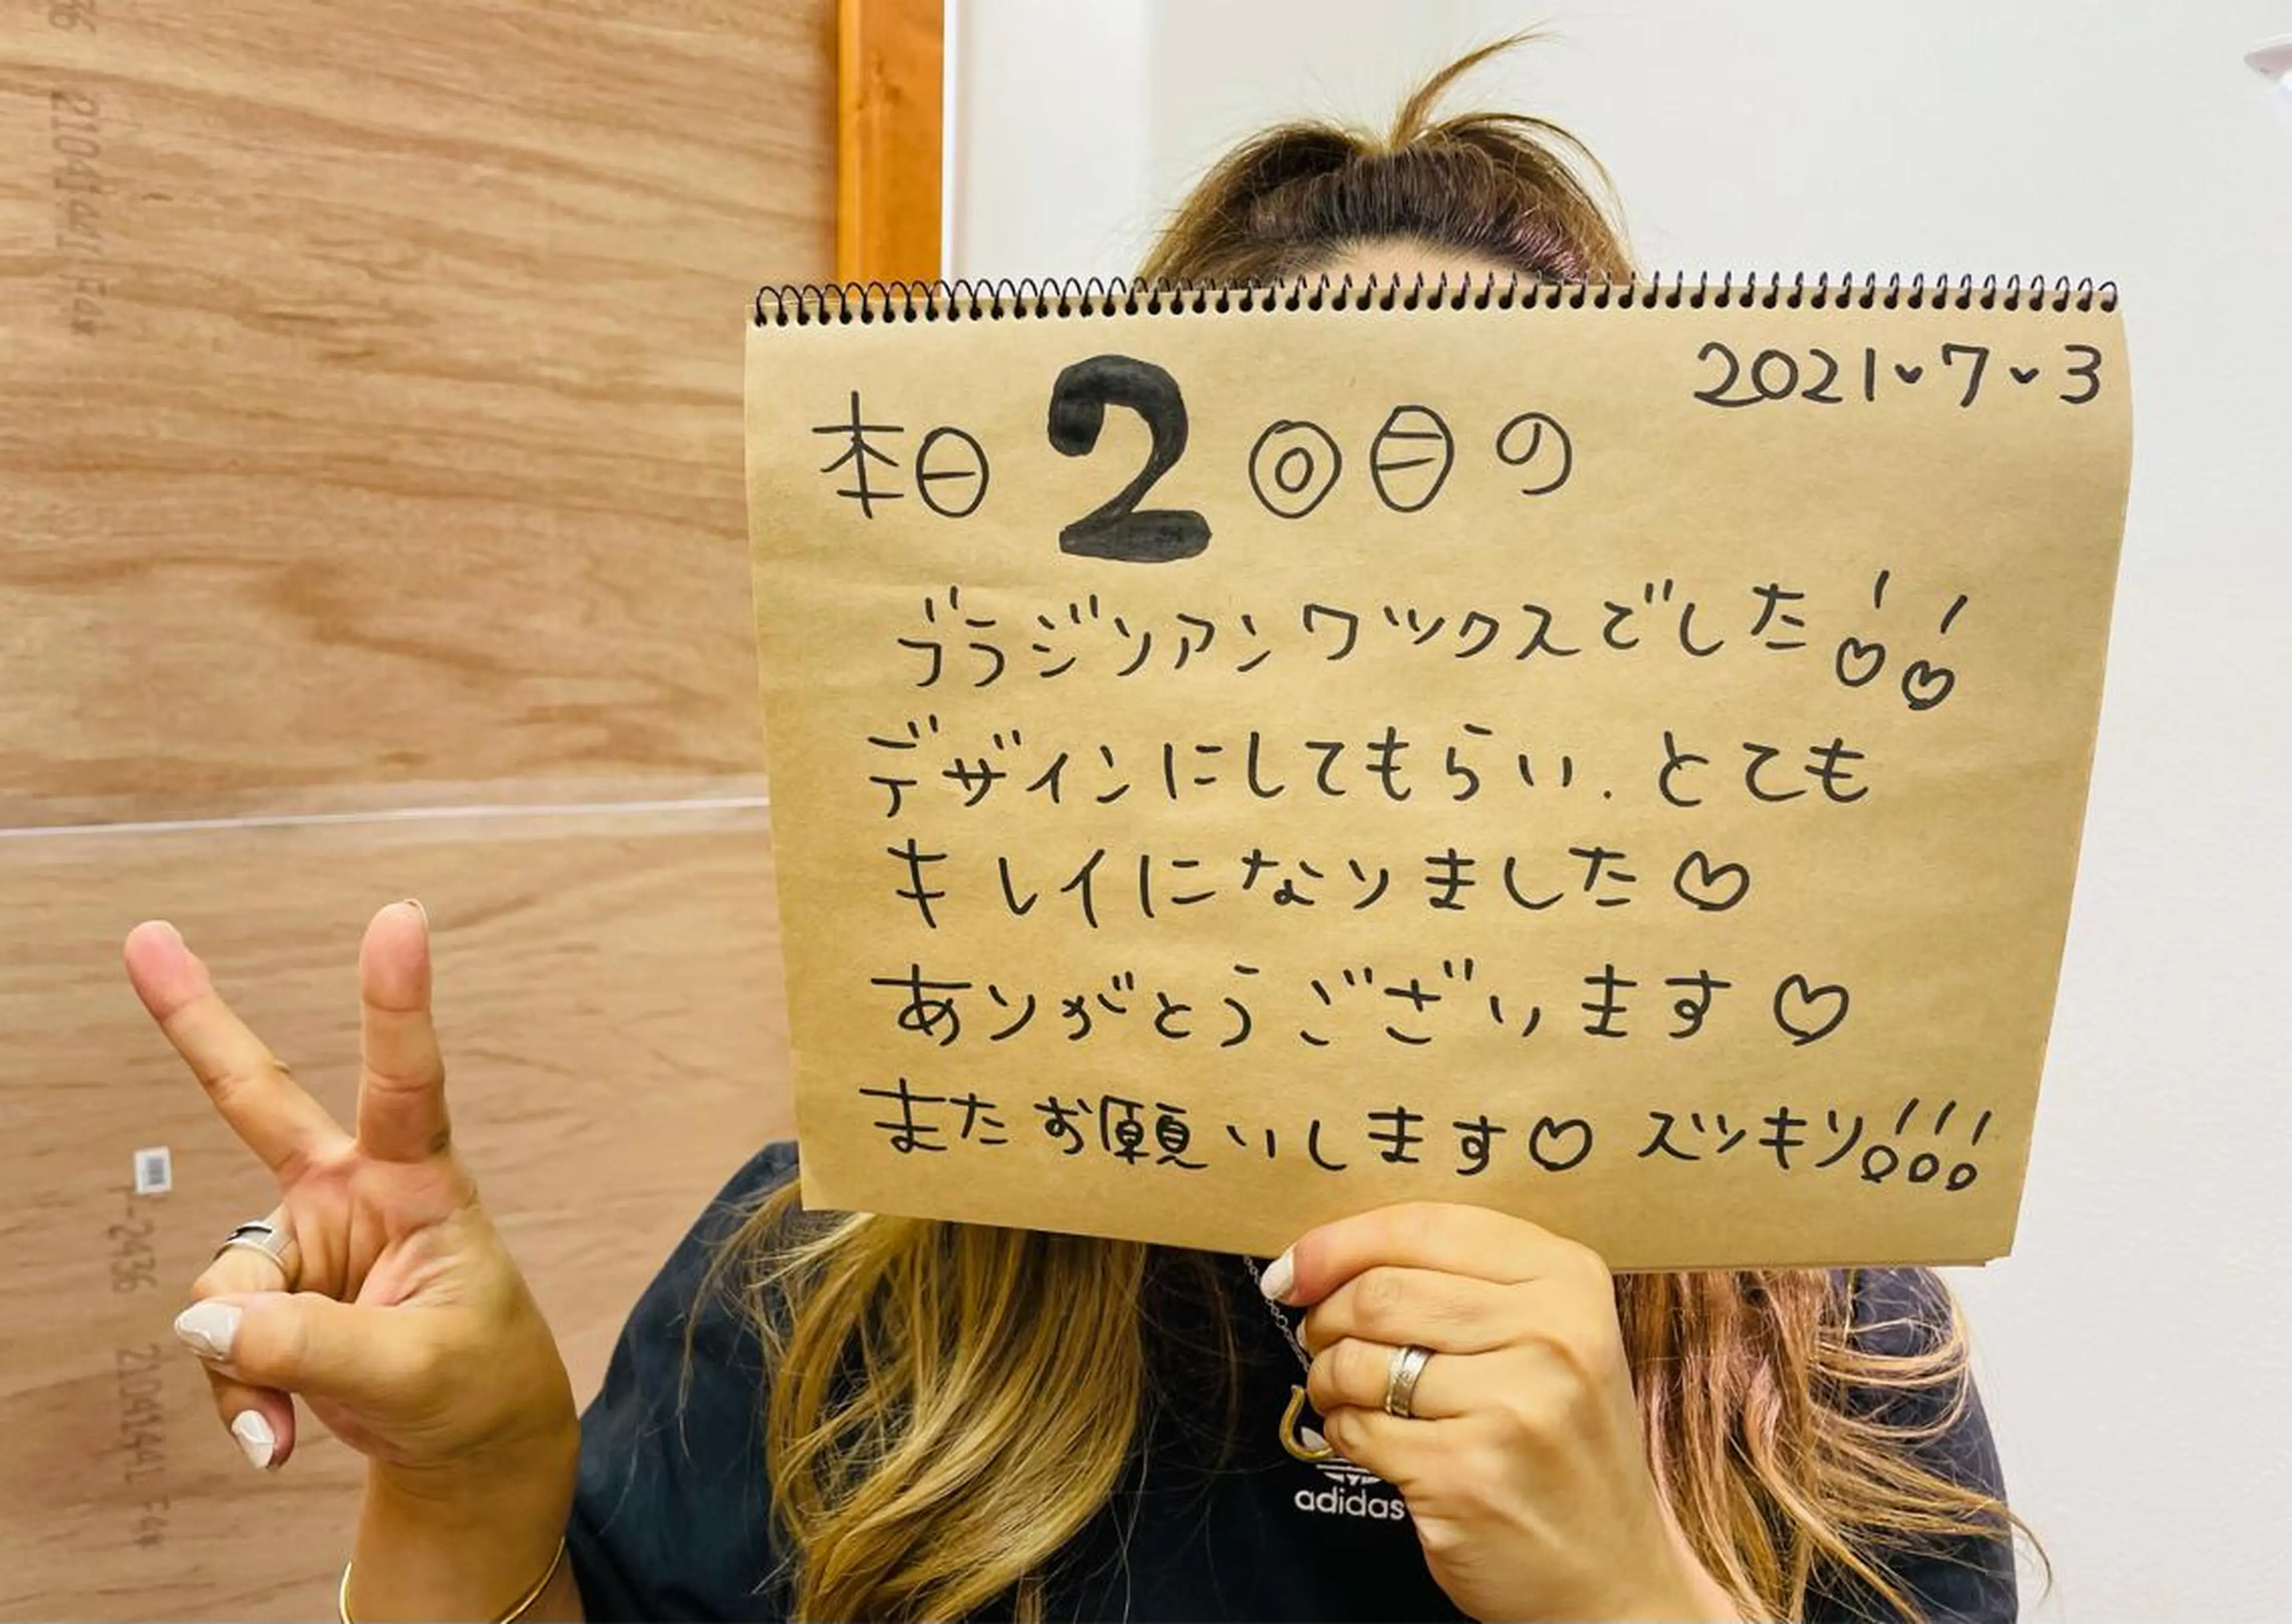 2021・7・3
本日2回目の
ブラジリアンワックスでした!!
デザインにしてもらい、とても
キレイになりました♡
ありがとうございます♡
またお願いします♡ スッキリ!!!
adidas
210414L F4*
T-2436 210414L F4*